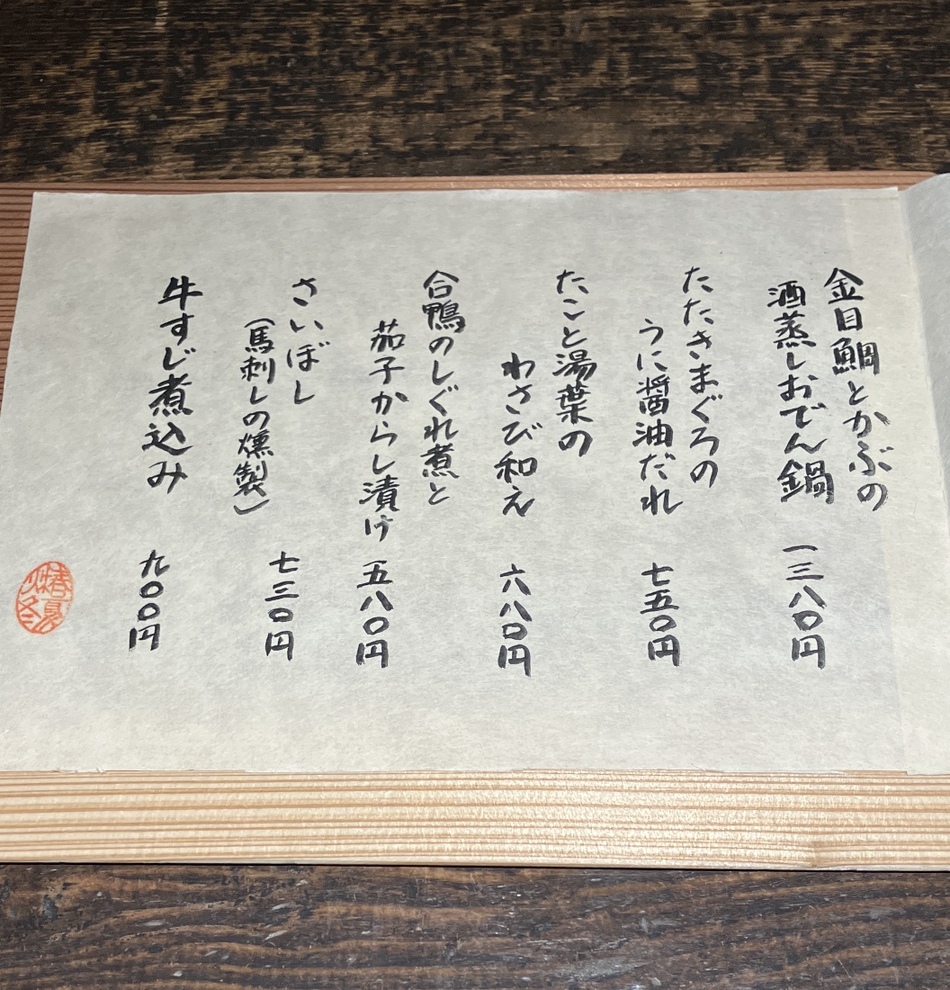 金目鯛とかぶの
酒蒸しおでん鍋 一三八〇円
たたきまぐろの
うに醤油だれ 七五〇円
たこと湯葉の
わさび和え 六八〇円
合鴨のしぐれ煮と
茄子からし漬け 五八〇円
さいぼし
(馬刺しの燻製) 七三〇円
牛すじ煮込み 九〇〇円